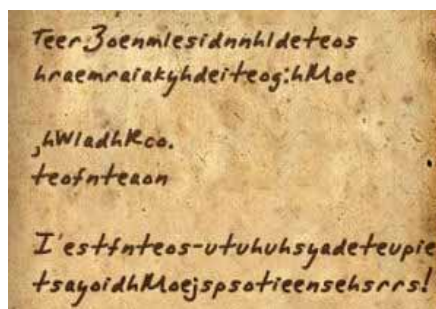 Teer3oenmlesidnnhldeteos
hraemraiakyhdeiteog:hMoe
,hWladhRco.
teofnteaon
I'estfnteos-utuhuhsyadeteupie
tsayoidhMoejspsotieensehsrrs!